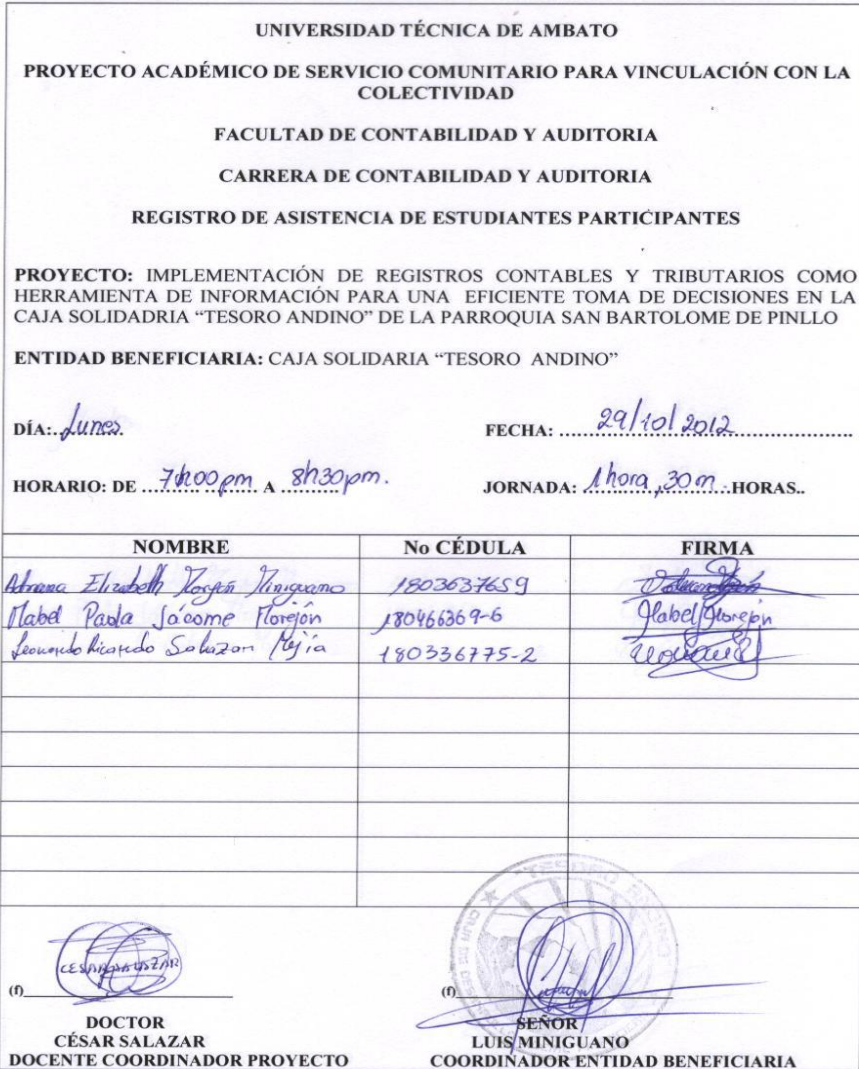 UNIVERSIDAD TÉCNICA DE AMBATO
PROYECTO ACADÉMICO DE SERVICIO COMUNITARIO PARA VINCULACIÓN CON LA
COLECTIVIDAD
FACULTAD DE CONTABILIDAD Y AUDITORIA
CARRERA DE CONTABILIDAD Y AUDITORIA
REGISTRO DE ASISTENCIA DE ESTUDIANTES PARTICIPANTES
PROYECTO: IMPLEMENTACIÓN DE REGISTROS CONTABLES Y TRIBUTARIOS COMO
HERRAMIENTA DE INFORMACIÓN PARA UNA EFICIENTE TOMA DE DECISIONES EN LA
CAJA SOLIDADRIA “TESORO ANDINO” DE LA PARROQUIA SAN BARTOLOME DE PINLLO
ENTIDAD BENEFICIARIA: CAJA SOLIDARIA “TESORO ANDINO”
DÍA: Lunes FECHA: 29/10/2012
HORARIO: DE 7h00pm A 8h30pm. JORNADA: 1hora, 30m HORAS..
NOMBRE No CÉDULA FIRMA
Adriana Elizabeth Miniguano 1803637659
Mabel Paola Jácome Morejón 180466369-6 Mabel Morejón
Leonardo Ricardo Salazar Mejía 180336775-2
TESORO ANDINO
CESAR SALAZAR
(f) (f)
DOCTOR SEÑOR
CÉSAR SALAZAR LUIS MINIGUANO
DOCENTE COORDINADOR PROYECTO COORDINADOR ENTIDAD BENEFICIARIA